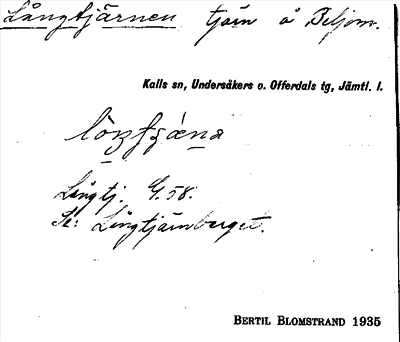 Långtjärnen tjärn å Biljom.
Kalls sn, Undersåkers o. Offerdals tg, Jämtl. l.
Långtj. G. 58.
Se: Långtjärnberget.
BERTIL BLOMSTRAND 1935